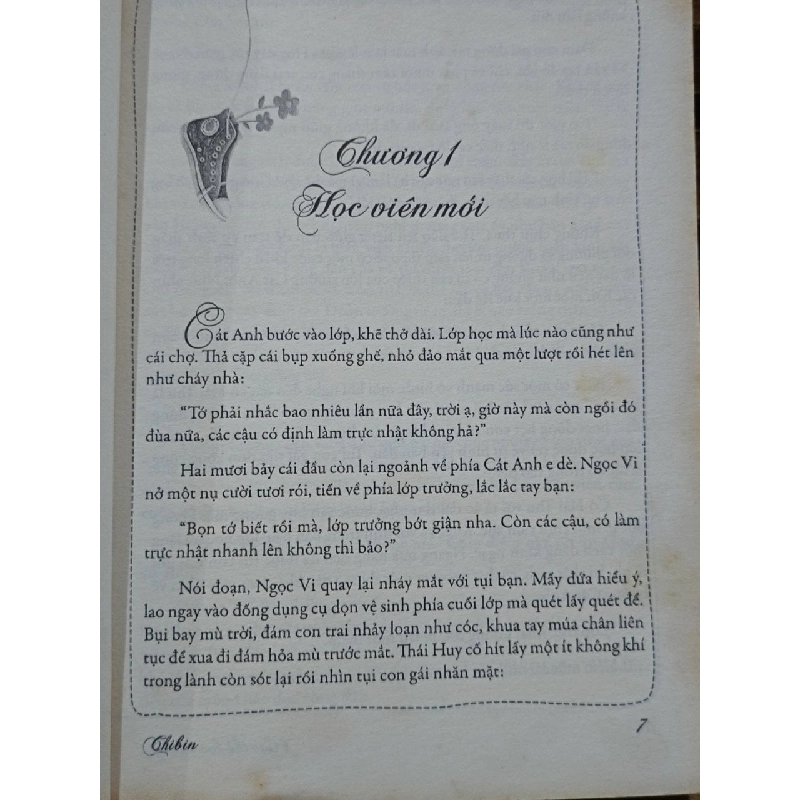 Chương 1
Học viên mới
Cát Anh bước vào lớp, khẽ thở dài. Lớp học mà lúc nào cũng như
cái chợ. Thả cặp cái bụp xuống ghế, nhỏ đảo mắt qua một lượt rồi hét lên
như cháy nhà:
“Tớ phải nhắc bao nhiêu lần nữa đây, trời ạ, giờ này mà còn ngồi đó
đùa nữa, các cậu có định làm trực nhật không hả?”
Hai mươi bảy cái đầu còn lại ngoảnh về phía Cát Anh e dè. Ngọc Vi
nở một nụ cười tươi rói, tiến về phía lớp trưởng, lắc lắc tay bạn:
“Bọn tớ biết rồi mà, lớp trưởng bớt giận nha. Còn các cậu, có làm
trực nhật nhanh lên không thì bảo?”
Nói đoạn, Ngọc Vi quay lại nháy mắt với tụi bạn. Mấy đứa hiểu ý,
lao ngay vào đống dụng cụ dọn vệ sinh phía cuối lớp mà quét lấy quét để.
Bụi bay mù trời, đám con trai nhảy loạn như cóc, khua tay múa chân liên
tục để xua đi đám hỏa mù trước mắt. Thái Huy cố hít lấy một ít không khí
trong lành còn sót lại rồi nhìn tụi con gái nhăn mặt:
Chibin
7